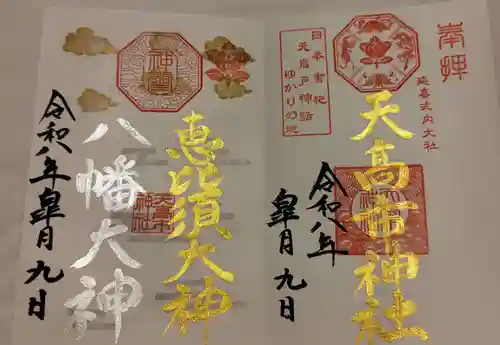 奉拝
延喜式内大社
天高市神社
日本書紀
天岩戸神話
ゆかりの地
令和八年
皐月九日
神寶
恵比須大神
八幡大神
令和八年皐月九日